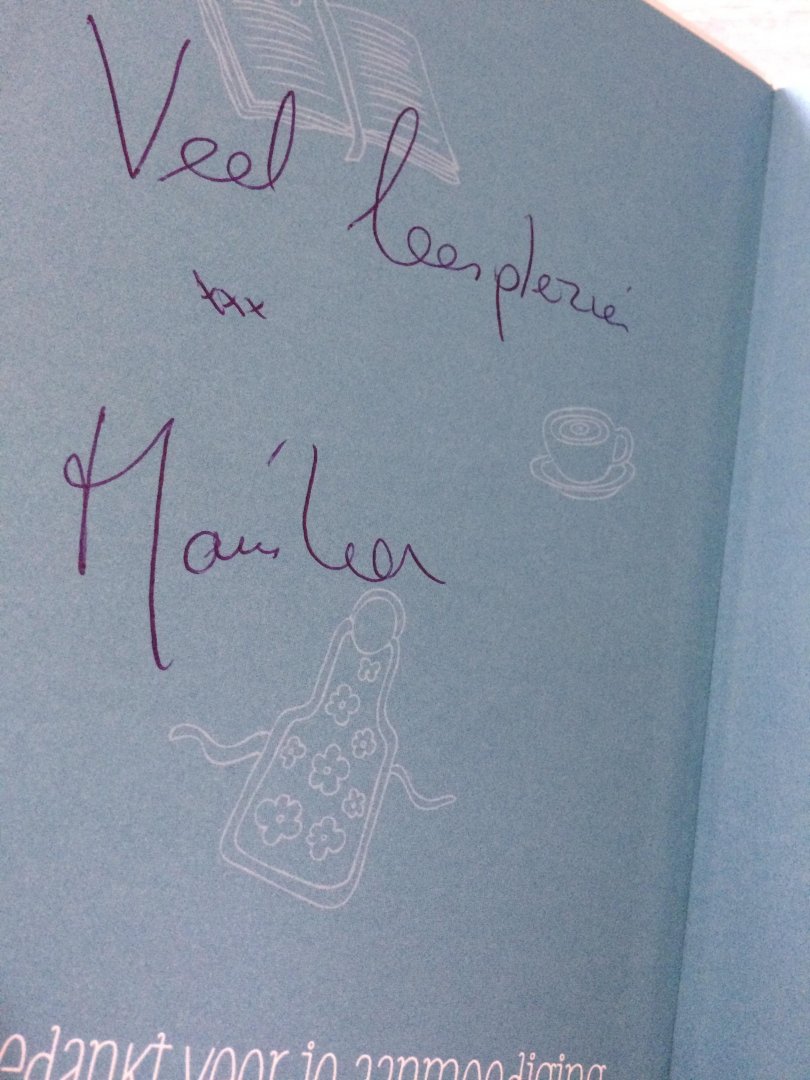 Veel leesplezier
xxx
Marika
edankt voor je aanmoediging